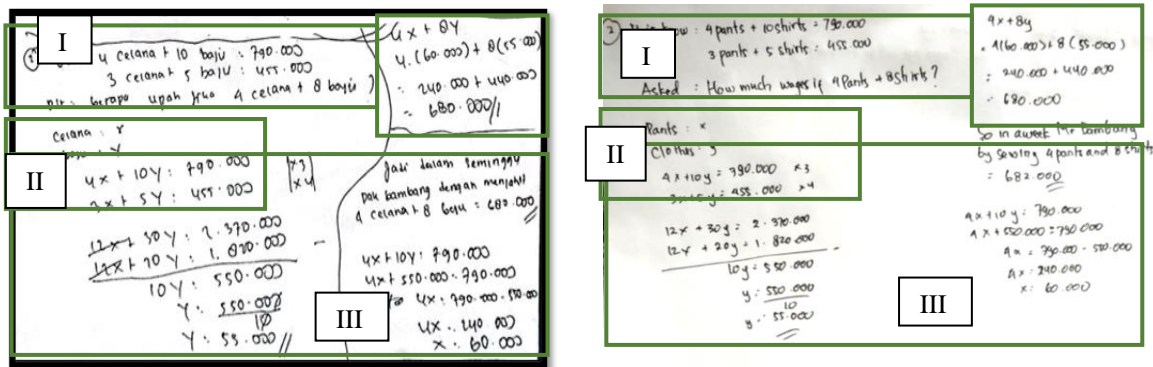 I
4 celana + 10 baju = 790.000
3 celana + 5 baju = 455.000
berapa upah jika 4 celana + 8 baju ?
4x + 8y
4.(60.000) + 8(55.000)
= 240.000 + 440.000
= 680.000 //
II
Celana = x
y
4x + 10y = 790.000 | x3
3x + 5y = 455.000 | x4
12x + 30y = 2.370.000
12x + 20y = 1.820.000 -
10y = 550.000
y = 550.000
10
y = 55.000 //
Jadi dalam seminggu
pak bambang dengan menjahit
4 celana + 8 baju = 682.000 //
4x + 10y = 790.000
4x + 550.000 = 790.000
4x = 790.000 - 550.000
4x = 240.000
x = 60.000
III
2
I
4 pants + 10 shirts = 790.000
3 pants + 5 shirts = 455.000
Asked : How much wages if 4 pants + 8 shirts ?
4x + 8y
= 4(60.000) + 8(55.000)
= 240.000 + 440.000
= 680.000
II
Pants = x
Clothes = y
4x + 10y = 790.000 x3
3x + 5y = 455.000 x4
12x + 30y = 2.370.000
12x + 20y = 1.820.000
10y = 550.000
y = 550.000
10
y = 55.000
So in a week Mr Bambang
by sewing 4 pants and 8 shirts
= 682.000
4x + 10y = 790.000
4x + 550.000 = 790.000
4x = 790.000 - 550.000
4x = 240.000
x = 60.000
III